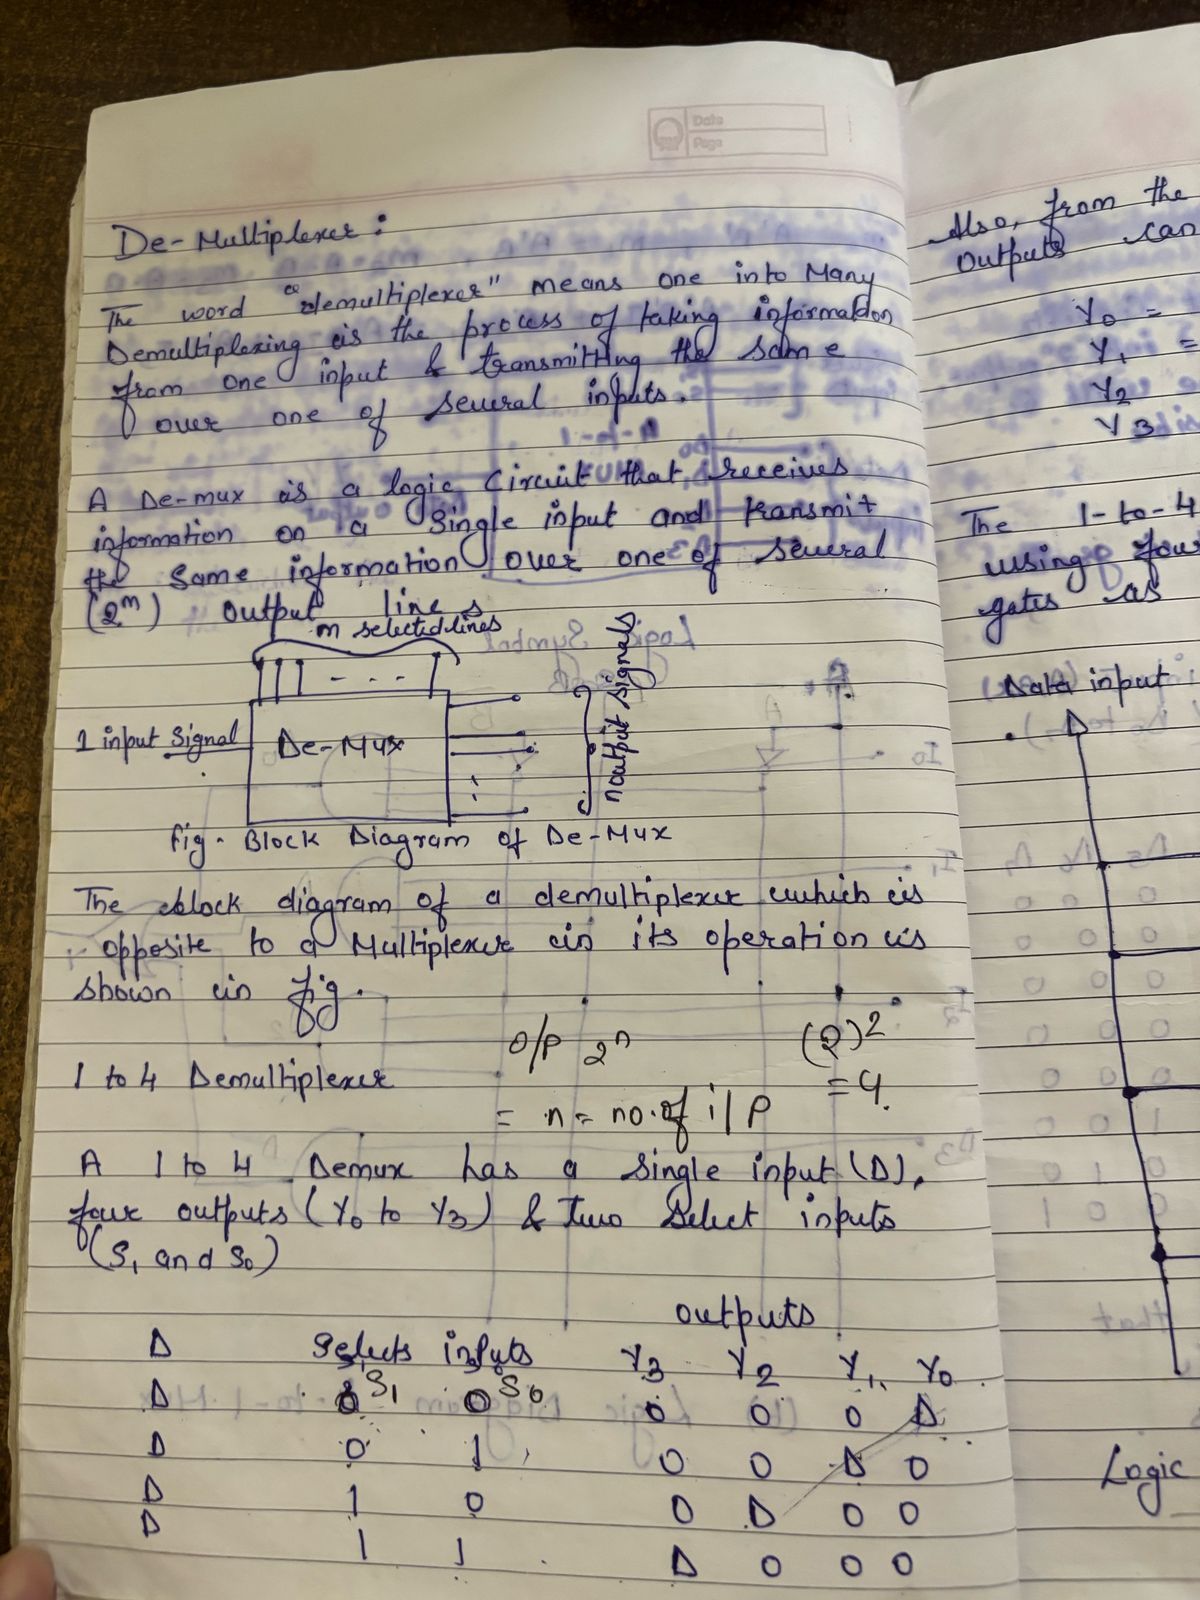 Date
Page
De-Multiplexer:
The word "demultiplexer" means one into Many
Demultiplexing is the process of taking information
from one input & transmitting the same
over one of several inputs.
A De-mux is a logic Circuit that receives
information on a Single input and transmit
the Same information over one of several
(2^m) output lines
m selected lines
1 input Signal
De-Mux
n output signals
fig. Block Diagram of De-Mux
The block diagram of a demultiplexer which is
opposite to a Multiplexer in its operation is
shown in fig.
O/P 2^n (2)^2
1 to 4 Demultiplexer = 4.
= n = no. of i/P
A 1 to 4 Demux has a Single input (D),
four outputs (Y0 to Y3) & Two Select inputs
(S1 and S0)
outputs
D Selects inputs Y3 Y2 Y1 Y0
D 0 S1 0 S0 0 0 0 D
D 0 1 0 0 D 0
D 1 0 0 D 0 0
D 1 1 D 0 0 0
Also, from the
outputs can
Y0 =
Y1 =
Y2
Y3
The 1-to-4
using four
gates as
Data input
D
Logic